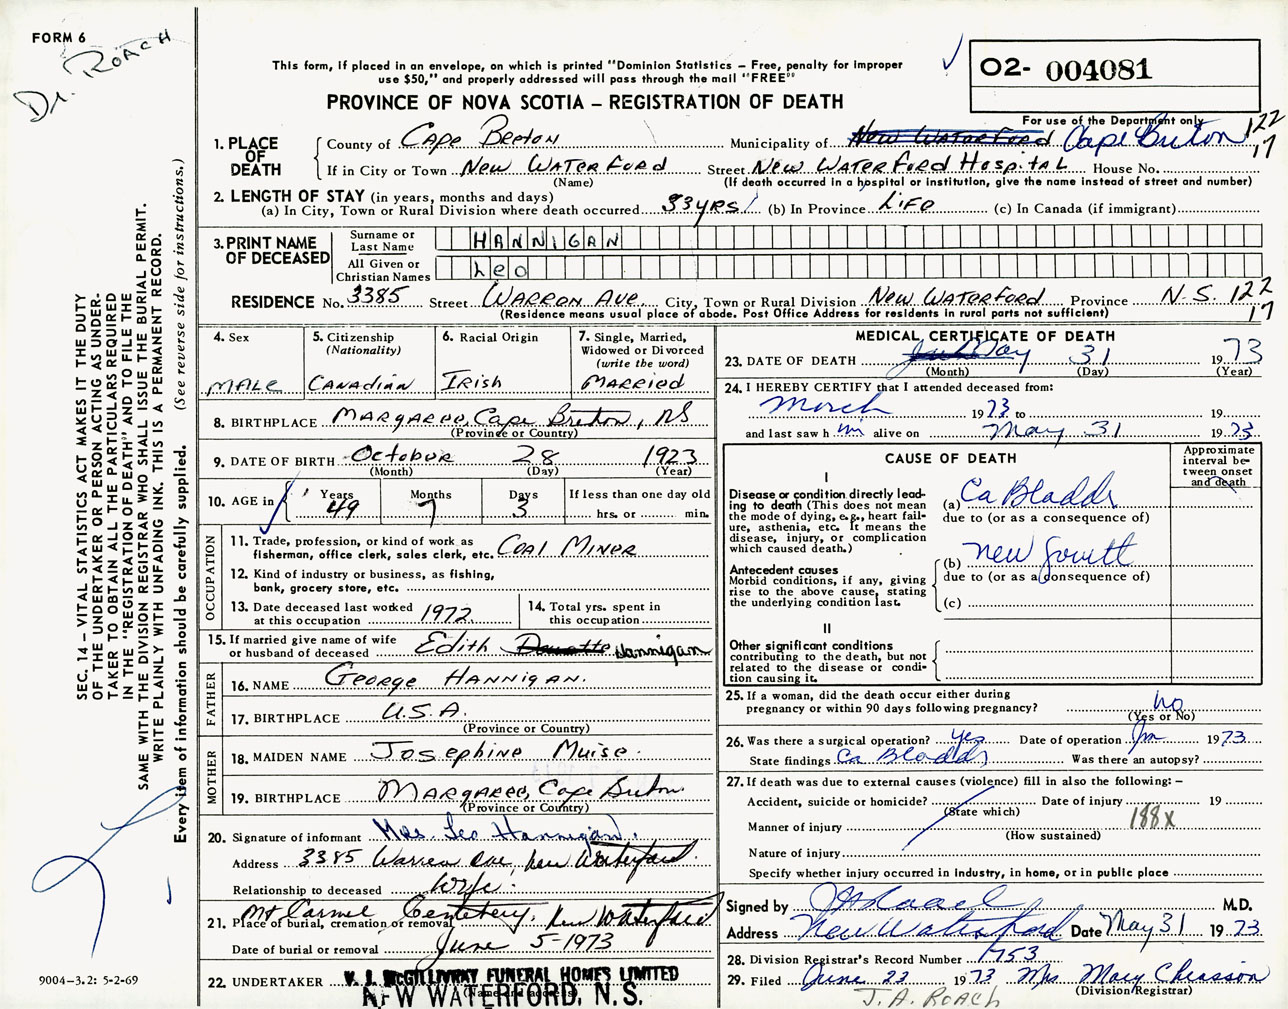 FORM 6
Dr. ROACH
This form, if placed in an envelope, on which is printed "Dominion Statistics – Free, penalty for improper
use $50," and properly addressed will pass through the mail "FREE"
PROVINCE OF NOVA SCOTIA – REGISTRATION OF DEATH
O2- 004081
For use of the Department only
122
17
1. PLACE OF DEATH
County of Cape Breton Municipality of New Waterford Cape Breton
If in City or Town New Waterford Street New Waterford Hospital House No.
(Name) (If death occurred in a hospital or institution, give the name instead of street and number)
2. LENGTH OF STAY (in years, months and days)
(a) In City, Town or Rural Division where death occurred 33yrs (b) In Province Life (c) In Canada (if immigrant)
3. PRINT NAME OF DECEASED
Surname or Last Name HANNIGAN
All Given or Christian Names Leo
RESIDENCE No. 3385 Street Warren Ave. City, Town or Rural Division New Waterford Province N.S. 122
17
(Residence means usual place of abode. Post Office Address for residents in rural parts not sufficient)
4. Sex
Male
5. Citizenship (Nationality)
Canadian
6. Racial Origin
Irish
7. Single, Married, Widowed or Divorced (write the word)
Married
8. BIRTHPLACE Margaree, Cape Breton, NS
(Province or Country)
9. DATE OF BIRTH October 28 1923
(Month) (Day) (Year)
10. AGE in Years 49 Months 7 Days 3 If less than one day old
hrs. or min.
OCCUPATION
11. Trade, profession, or kind of work as
fisherman, office clerk, sales clerk, etc. Coal Miner
12. Kind of industry or business, as fishing,
bank, grocery store, etc.
13. Date deceased last worked
at this occupation 1972
14. Total yrs. spent in
this occupation
15. If married give name of wife
or husband of deceased Edith Hannigan
FATHER
16. NAME George Hannigan.
17. BIRTHPLACE U.S.A.
(Province or Country)
MOTHER
18. MAIDEN NAME Josephine Muise.
19. BIRTHPLACE Margaree, Cape Breton
(Province or Country)
20. Signature of informant Mrs. Leo Hannigan.
Address 3385 Warren Ave, New Waterford.
Relationship to deceased Wife.
21. Place of burial, cremation or removal Mt Carmel Cemetery, New Waterford
Date of burial or removal June 5-1973
22. UNDERTAKER V. J. McGILLIVRAY FUNERAL HOMES LIMITED
(Name and address)
NEW WATERFORD, N.S.
MEDICAL CERTIFICATE OF DEATH
23. DATE OF DEATH May 31 1973
(Month) (Day) (Year)
24. I HEREBY CERTIFY that I attended deceased from:
March 1973 to 19
and last saw him alive on May 31 1973
CAUSE OF DEATH
Approximate interval between onset and death
I
Disease or condition directly lead-
ing to death (This does not mean
the mode of dying, e.g., heart fail-
ure, asthenia, etc. It means the
disease, injury, or complication
which caused death.)
(a) Ca Bladdr
due to (or as a consequence of)
Antecedent causes
Morbid conditions, if any, giving
rise to the above cause, stating
the underlying condition last.
(b) new growth
due to (or as a consequence of)
(c)
II
Other significant conditions
contributing to the death, but not
related to the disease or condi-
tion causing it.
25. If a woman, did the death occur either during
pregnancy or within 90 days following pregnancy? no
(Yes or No)
26. Was there a surgical operation? yes Date of operation Jan 1973
State findings Ca Bladdr Was there an autopsy?
27. If death was due to external causes (violence) fill in also the following: –
Accident, suicide or homicide? Date of injury 19
(State which)
Manner of injury 188x
(How sustained)
Nature of injury
Specify whether injury occurred in industry, in home, or in public place
Signed by M.D.
Address New Waterford Date May 31 1973
28. Division Registrar's Record Number 1753
29. Filed June 23 1973 Mrs Mary Chiasson
(Division Registrar)
J. A. ROACH
SEC. 14 – VITAL STATISTICS ACT MAKES IT THE DUTY
OF THE UNDERTAKER OR PERSON ACTING AS UNDER-
TAKER TO OBTAIN ALL THE PARTICULARS REQUIRED
IN THE "REGISTRATION OF DEATH" AND TO FILE THE
SAME WITH THE DIVISION REGISTRAR WHO SHALL ISSUE THE BURIAL PERMIT.
WRITE PLAINLY WITH UNFADING INK. THIS IS A PERMANENT RECORD.
Every item of information should be carefully supplied. (See reverse side for instructions.)
9004-3.2: 5-2-69